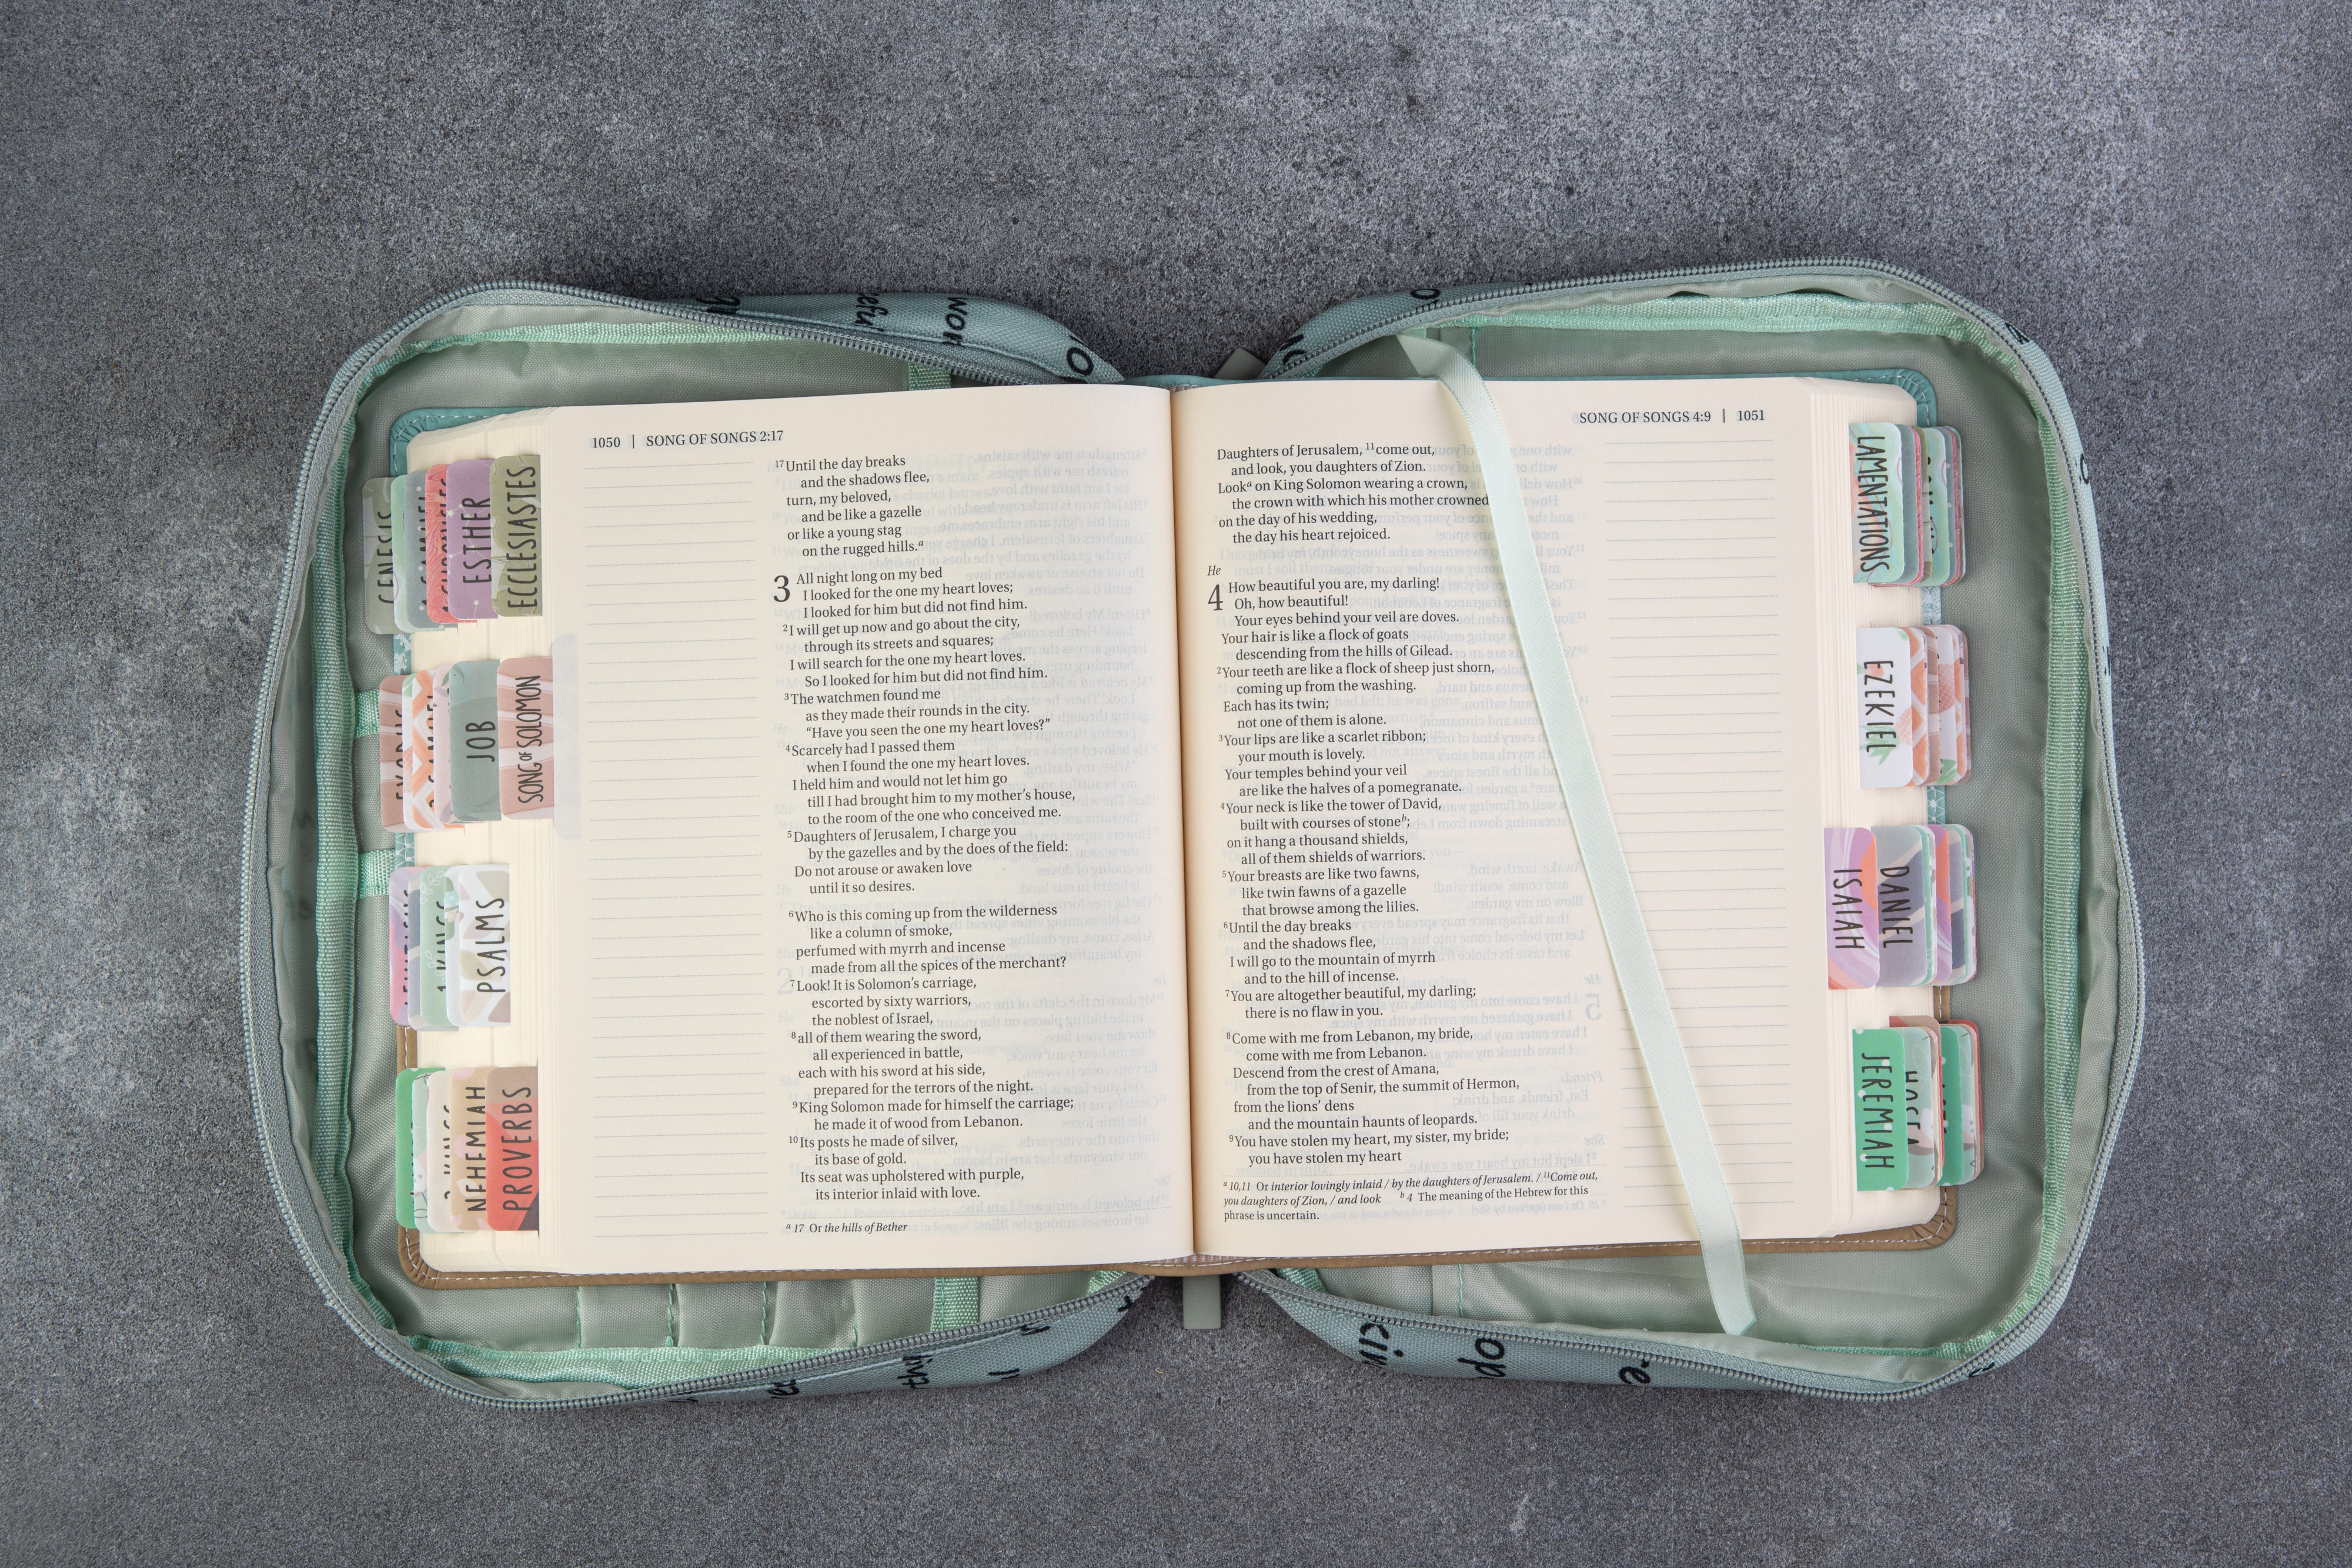 1050 | SONG OF SONGS 2:17
17 Until the day breaks
and the shadows flee,
turn, my beloved,
and be like a gazelle
or like a young stag
on the rugged hills.a
3 All night long on my bed
I looked for the one my heart loves;
I looked for him but did not find him.
2 I will get up now and go about the city,
through its streets and squares;
I will search for the one my heart loves.
So I looked for him but did not find him.
3 The watchmen found me
as they made their rounds in the city.
“Have you seen the one my heart loves?”
4 Scarcely had I passed them
when I found the one my heart loves.
I held him and would not let him go
till I had brought him to my mother’s house,
to the room of the one who conceived me.
5 Daughters of Jerusalem, I charge you
by the gazelles and by the does of the field:
Do not arouse or awaken love
until it so desires.
6 Who is this coming up from the wilderness
like a column of smoke,
perfumed with myrrh and incense
made from all the spices of the merchant?
7 Look! It is Solomon’s carriage,
escorted by sixty warriors,
the noblest of Israel,
8 all of them wearing the sword,
all experienced in battle,
each with his sword at his side,
prepared for the terrors of the night.
9 King Solomon made for himself the carriage;
he made it of wood from Lebanon.
10 Its posts he made of silver,
its base of gold.
Its seat was upholstered with purple,
its interior inlaid with love.
a 17 Or the hills of Bether
SONG OF SONGS 4:9 | 1051
Daughters of Jerusalem, 11 come out,
and look, you daughters of Zion.
Looka on King Solomon wearing a crown,
the crown with which his mother crowned
on the day of his wedding,
the day his heart rejoiced.
He
4 How beautiful you are, my darling!
Oh, how beautiful!
Your eyes behind your veil are doves.
Your hair is like a flock of goats
descending from the hills of Gilead.
2 Your teeth are like a flock of sheep just shorn,
coming up from the washing.
Each has its twin;
not one of them is alone.
3 Your lips are like a scarlet ribbon;
your mouth is lovely.
Your temples behind your veil
are like the halves of a pomegranate.
4 Your neck is like the tower of David,
built with courses of stoneb;
on it hang a thousand shields,
all of them shields of warriors.
5 Your breasts are like two fawns,
like twin fawns of a gazelle
that browse among the lilies.
6 Until the day breaks
and the shadows flee,
I will go to the mountain of myrrh
and to the hill of incense.
7 You are altogether beautiful, my darling;
there is no flaw in you.
8 Come with me from Lebanon, my bride,
come with me from Lebanon.
Descend from the crest of Amana,
from the top of Senir, the summit of Hermon,
from the lions’ dens
and the mountain haunts of leopards.
9 You have stolen my heart, my sister, my bride;
you have stolen my heart
a 10,11 Or interior lovingly inlaid / by the daughters of Jerusalem. / 11 Come out,
you daughters of Zion, / and look b 4 The meaning of the Hebrew for this
phrase is uncertain.
GENESIS
ESTHER
ECCLESIASTES
JOB
SONG OF SOLOMON
1 KINGS
PSALMS
2 KINGS
NEHEMIAH
PROVERBS
LAMENTATIONS
EZEKIEL
ISAIAH
DANIEL
JEREMIAH
HOSEA